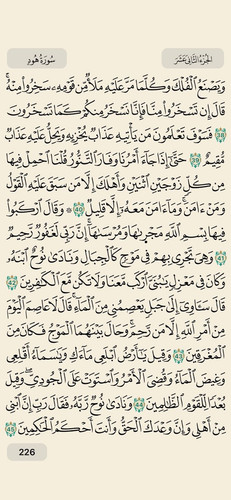 الجزء الثاني عشر
سورة هود
وَيَصْنَعُ ٱلْفُلْكَ وَكُلَّمَا مَرَّ عَلَيْهِ مَلَأٌ مِّن قَوْمِهِۦ سَخِرُوا۟ مِنْهُ ۚ
قَالَ إِن تَسْخَرُوا۟ مِنَّا فَإِنَّا نَسْخَرُ مِنكُمْ كَمَا تَسْخَرُونَ
﴿38﴾ فَسَوْفَ تَعْلَمُونَ مَن يَأْتِيهِ عَذَابٌ يُخْزِيهِ وَيَحِلُّ عَلَيْهِ عَذَابٌ
مُّقِيمٌ ﴿39﴾ حَتَّىٰٓ إِذَا جَآءَ أَمْرُنَا وَفَارَ ٱلتَّنُّورُ قُلْنَا ٱحْمِلْ فِيهَا
مِن كُلٍّ زَوْجَيْنِ ٱثْنَيْنِ وَأَهْلَكَ إِلَّا مَن سَبَقَ عَلَيْهِ ٱلْقَوْلُ
وَمَنْ ءَامَنَ ۚ وَمَآ ءَامَنَ مَعَهُۥٓ إِلَّا قَلِيلٌ ﴿40﴾ ۞ وَقَالَ ٱرْكَبُوا۟
فِيهَا بِسْمِ ٱللَّهِ مَجْر۪ىٰهَا وَمُرْسَىٰهَآ ۚ إِنَّ رَبِّى لَغَفُورٌ رَّحِيمٌ
﴿41﴾ وَهِىَ تَجْرِى بِهِمْ فِى مَوْجٍ كَٱلْجِبَالِ وَنَادَىٰ نُوحٌ ٱبْنَهُۥ
وَكَانَ فِى مَعْزِلٍ يَـٰبُنَىَّ ٱرْكَب مَّعَنَا وَلَا تَكُن مَّعَ ٱلْكَـٰفِرِينَ ﴿42﴾
قَالَ سَـَٔاوِىٓ إِلَىٰ جَبَلٍ يَعْصِمُنِى مِنَ ٱلْمَآءِ ۚ قَالَ لَا عَاصِمَ ٱلْيَوْمَ
مِنْ أَمْرِ ٱللَّهِ إِلَّا مَن رَّحِمَ ۚ وَحَالَ بَيْنَهُمَا ٱلْمَوْجُ فَكَانَ مِنَ
ٱلْمُغْرَقِينَ ﴿43﴾ وَقِيلَ يَـٰٓأَرْضُ ٱبْلَعِى مَآءَكِ وَيَـٰسَمَآءُ أَقْلِعِى
وَغِيضَ ٱلْمَآءُ وَقُضِىَ ٱلْأَمْرُ وَٱسْتَوَتْ عَلَى ٱلْجُودِىِّ ۖ وَقِيلَ
بُعْدًا لِّلْقَوْمِ ٱلظَّـٰلِمِينَ ﴿44﴾ وَنَادَىٰ نُوحٌ رَّبَّهُۥ فَقَالَ رَبِّ إِنَّ ٱبْنِى
مِنْ أَهْلِى وَإِنَّ وَعْدَكَ ٱلْحَقُّ وَأَنتَ أَحْكَمُ ٱلْحَـٰكِمِينَ ﴿45﴾
226